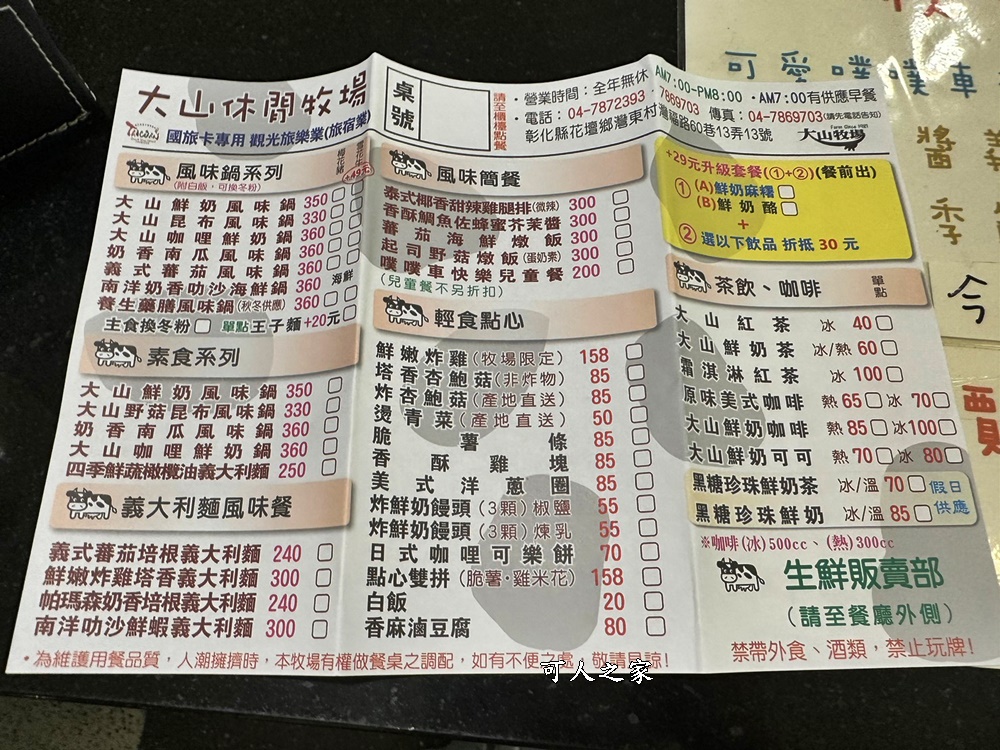 大山休閒牧場
國旅卡專用 觀光旅樂業(旅宿業)
桌號
請至櫃檯點餐
・營業時間：全年無休 AM7:00-PM8:00 ・AM7:00有供應早餐
・電話：04-7872393・7869703 傳真：04-7869703(請先電話告知)
彰化縣花壇鄉灣東村灣福路60巷13弄13號
大山牧場
風味鍋系列
(附白飯，可換冬粉)
梅花豬
+49元
大山鮮奶風味鍋 350
大山昆布風味鍋 330
大山咖哩鮮奶鍋 360
奶香南瓜風味鍋 360
義式蕃茄風味鍋 360
南洋奶香叻沙海鮮鍋 360 海鮮
養生藥膳風味鍋(秋冬供應) 360
主食換冬粉 單點王子麵+20元
素食系列
大山鮮奶風味鍋 350
大山野菇昆布風味鍋 330
奶香南瓜風味鍋 360
大山咖哩鮮奶鍋 360
四季鮮蔬橄欖油義大利麵 250
義大利麵風味餐
義式蕃茄培根義大利麵 240
鮮嫩炸雞塔香義大利麵 300
帕瑪森奶香培根義大利麵 240
南洋叻沙鮮蝦義大利麵 300
風味簡餐
泰式椰香甜辣雞腿排(微辣) 300
香酥鯛魚佐蜂蜜芥茉醬 300
蕃茄海鮮燉飯 300
起司野菇燉飯(蛋奶素) 300
噗噗車快樂兒童餐 200
(兒童餐不另折扣)
輕食點心
鮮嫩炸雞(牧場限定) 158
塔香杏鮑菇(非炸物) 85
炸杏鮑菇(產地直送) 85
燙青菜(產地直送) 50
脆薯條 85
香酥雞塊 85
美式洋蔥圈 85
炸鮮奶饅頭(3顆)椒鹽 55
炸鮮奶饅頭(3顆)煉乳 55
日式咖哩可樂餅 70
點心雙拼(脆薯・雞米花) 158
白飯 20
香麻滷豆腐 80
+29元升級套餐(①+②)(餐前出)
① (A)鮮奶麻糬
(B)鮮奶酪
+
② 選以下飲品 折抵 30 元
茶飲、咖啡 單點
大山紅茶 冰 40
大山鮮奶茶 冰/熱 60
霜淇淋紅茶 冰 100
原味美式咖啡 熱 65 冰 70
大山鮮奶咖啡 熱 85 冰 100
大山鮮奶可可 熱 70 冰 80
黑糖珍珠鮮奶茶 冰/溫 70
黑糖珍珠鮮奶 冰/溫 85
假日供應
※咖啡(冰)500cc、(熱)300cc
生鮮販賣部
(請至餐廳外側)
禁帶外食、酒類，禁止玩牌!
・為維護用餐品質，人潮擁擠時，本牧場有權做餐桌之調配，如有不便之處，敬請見諒!
可人之家
可愛噗噗車
醬
今